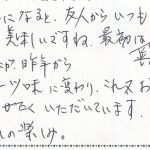 になると、友人からいつも
美味しいですね。最初は
が、昨年から
ーツ味に変わり、これまたお
せていただいています。
しの楽しみ。